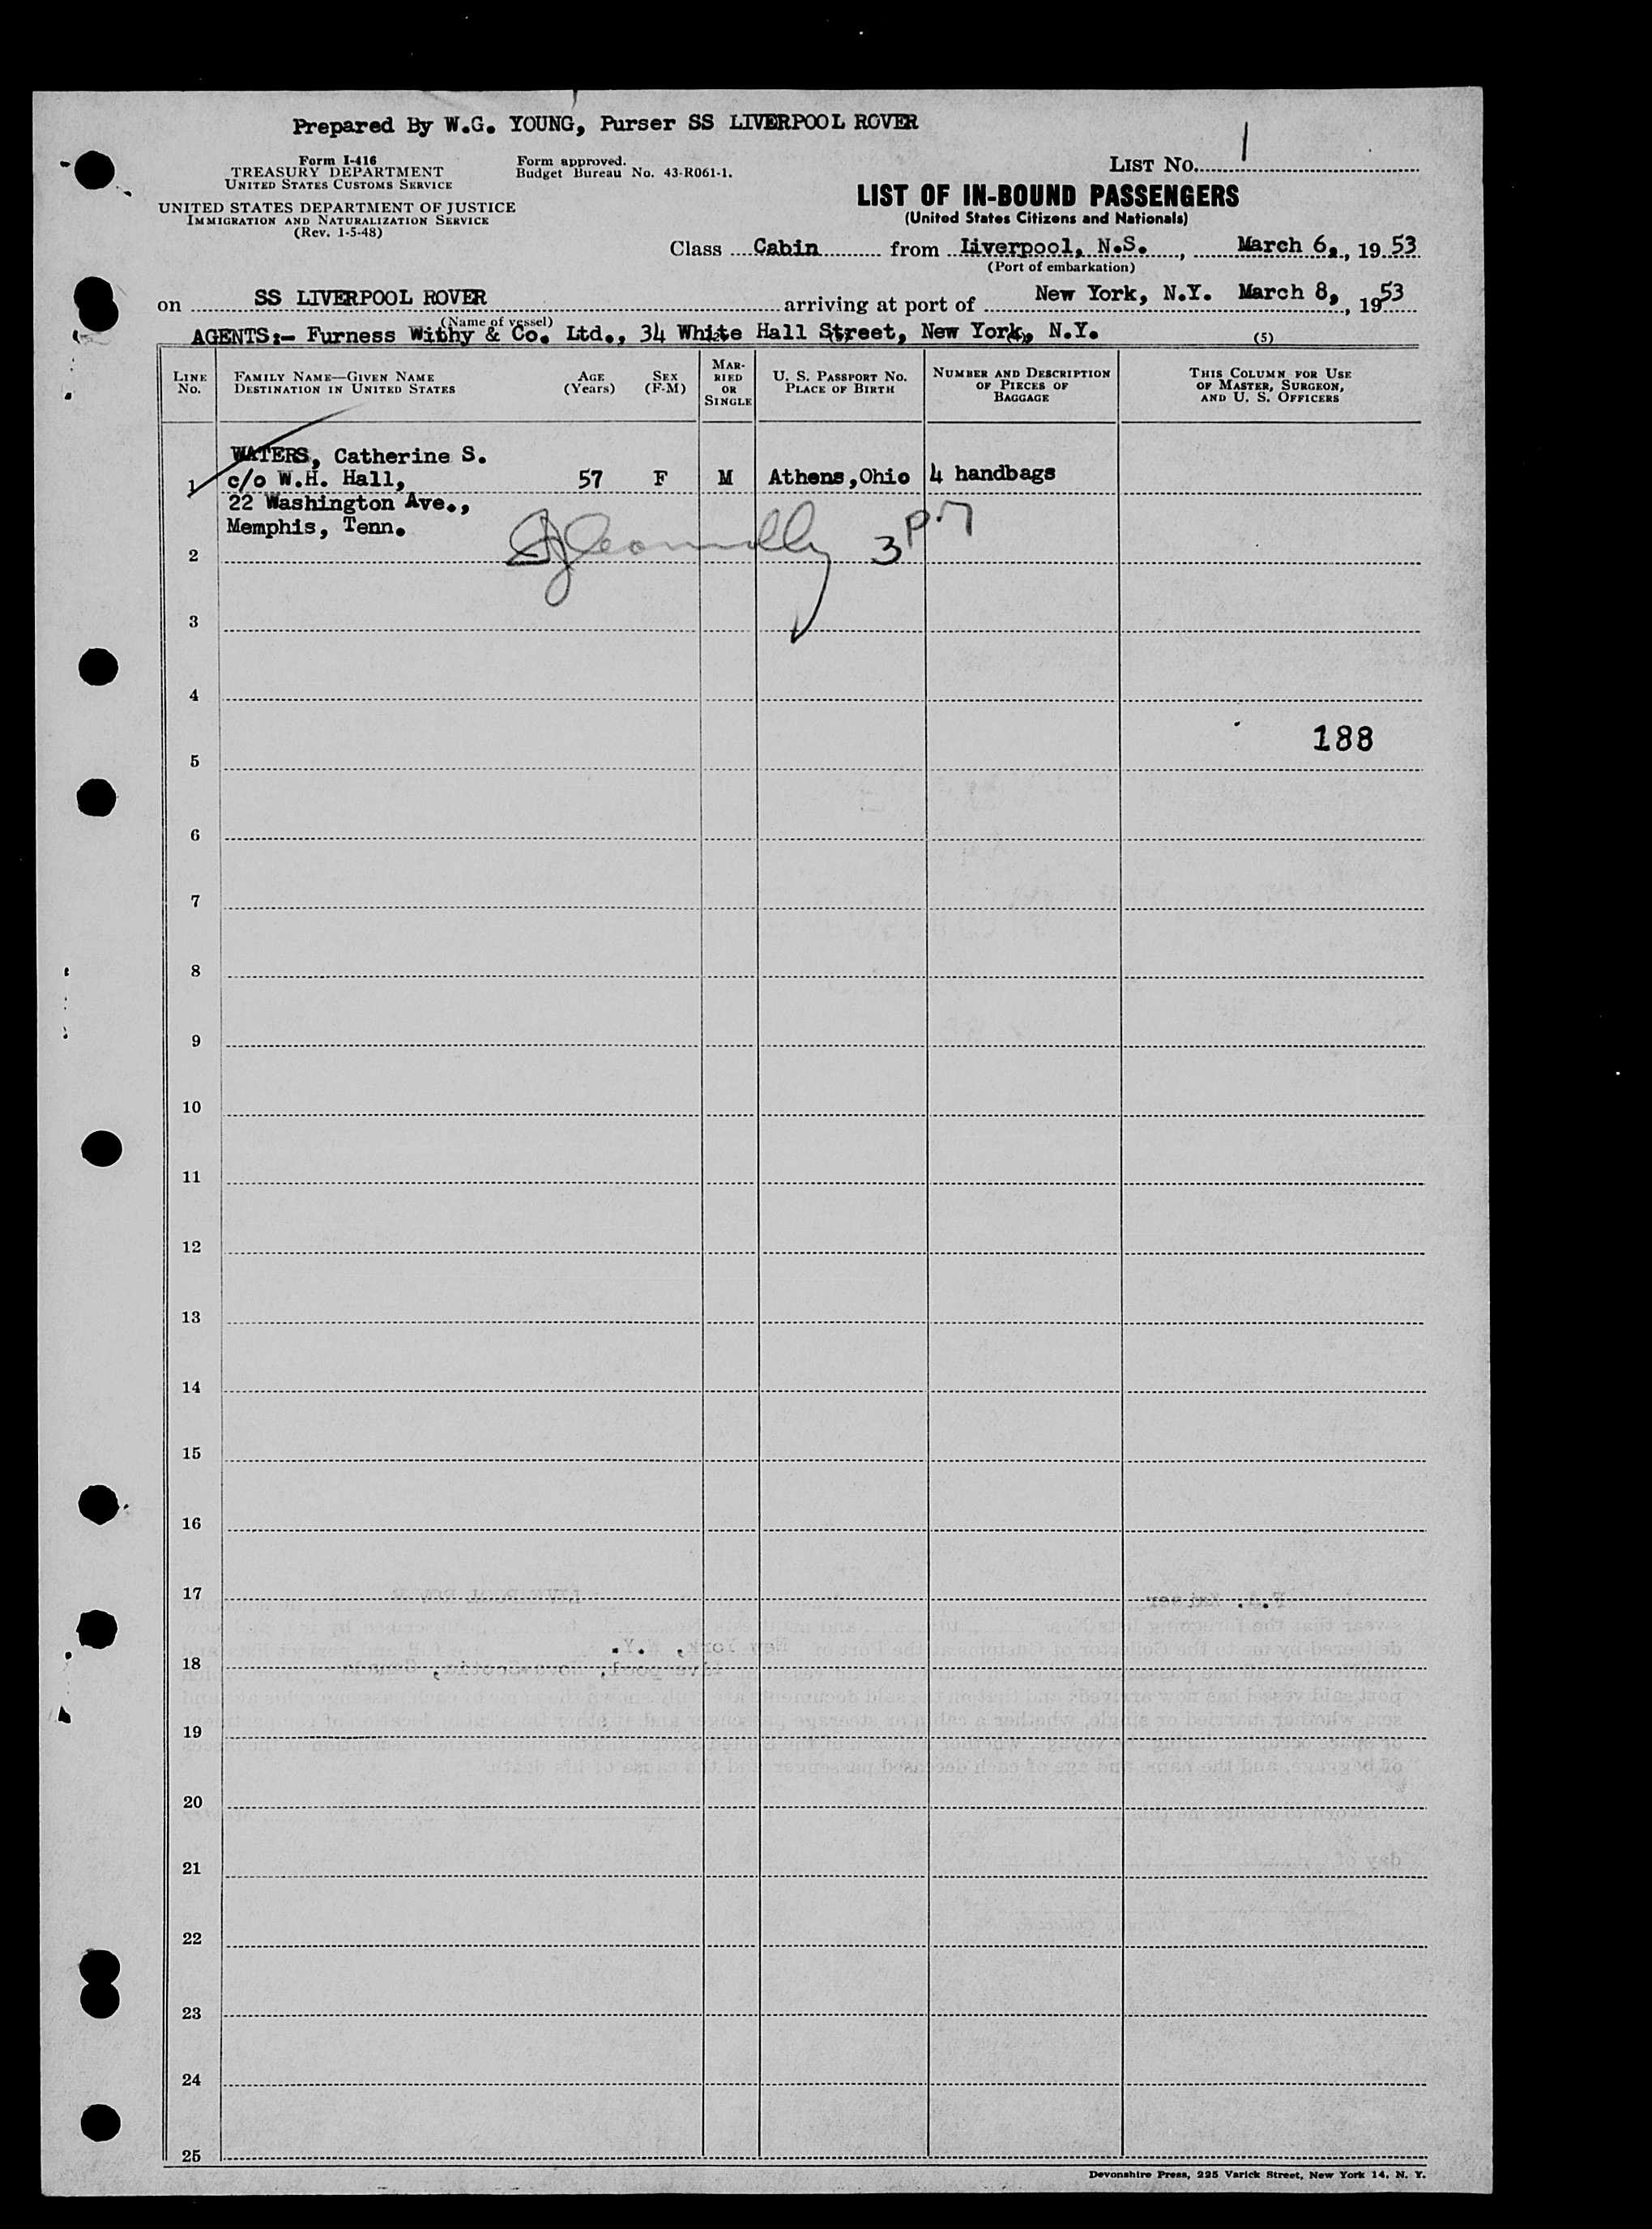 Prepared By W.G. YOUNG, Purser SS LIVERPOOL ROVER
Form I-416
TREASURY DEPARTMENT
UNITED STATES CUSTOMS SERVICE
UNITED STATES DEPARTMENT OF JUSTICE
IMMIGRATION AND NATURALIZATION SERVICE
(Rev. 1-5-48)
Form approved.
Budget Bureau No. 43-R061-1.
LIST No. 1
LIST OF IN-BOUND PASSENGERS
(United States Citizens and Nationals)
Class Cabin from Liverpool, N.S., March 6, 1953
(Port of embarkation)
on SS LIVERPOOL ROVER arriving at port of New York, N.Y. March 8, 1953
(Name of vessel)
AGENTS:- Furness Withy & Co. Ltd., 34 White Hall Street, New York, N.Y.
(5)
LINE No.
FAMILY NAME—GIVEN NAME
DESTINATION IN UNITED STATES
AGE
(Years)
SEX
(F-M)
MARRIED OR SINGLE
U. S. PASSPORT No.
PLACE OF BIRTH
NUMBER AND DESCRIPTION
OF PIECES OF
BAGGAGE
THIS COLUMN FOR USE
OF MASTER, SURGEON,
AND U. S. OFFICERS
WATERS, Catherine S.
1 c/o W.H. Hall, 57 F M Athens,Ohio 4 handbags
22 Washington Ave.,
Memphis, Tenn.
2
3
4
188
5
6
7
8
9
10
11
12
13
14
15
16
17
18
19
20
21
22
23
24
25
Devonshire Press, 225 Varick Street, New York 14, N. Y.